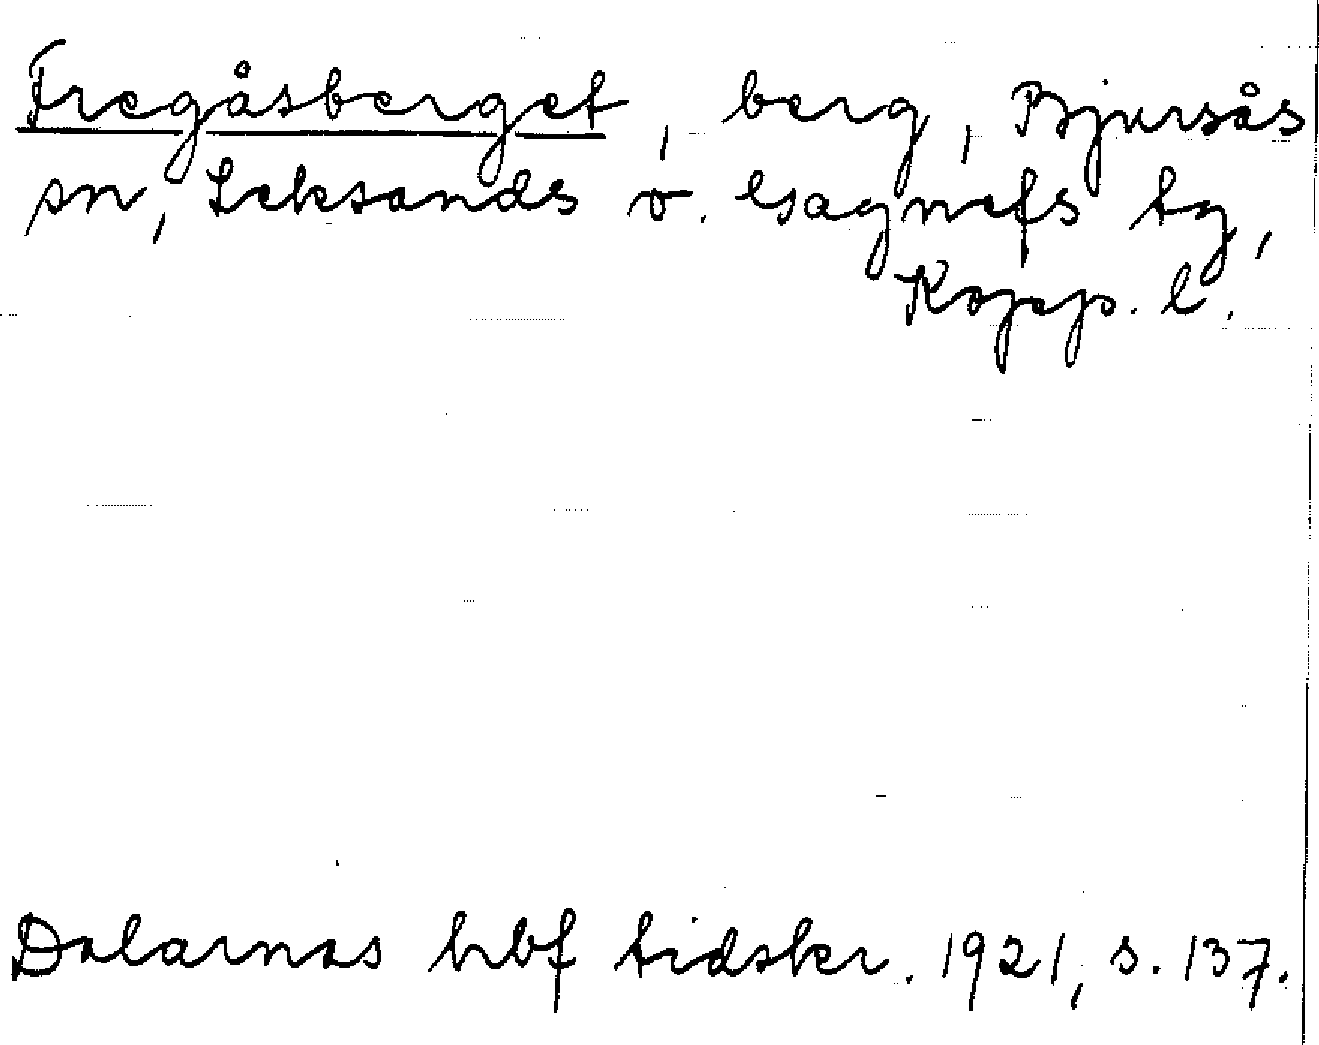 Fregåsberget, berg, Bjursås
sn, Leksands o. Gagnefs tg,
Kopp. l.
Dalarnas hbf tidskr. 1921, s. 137.